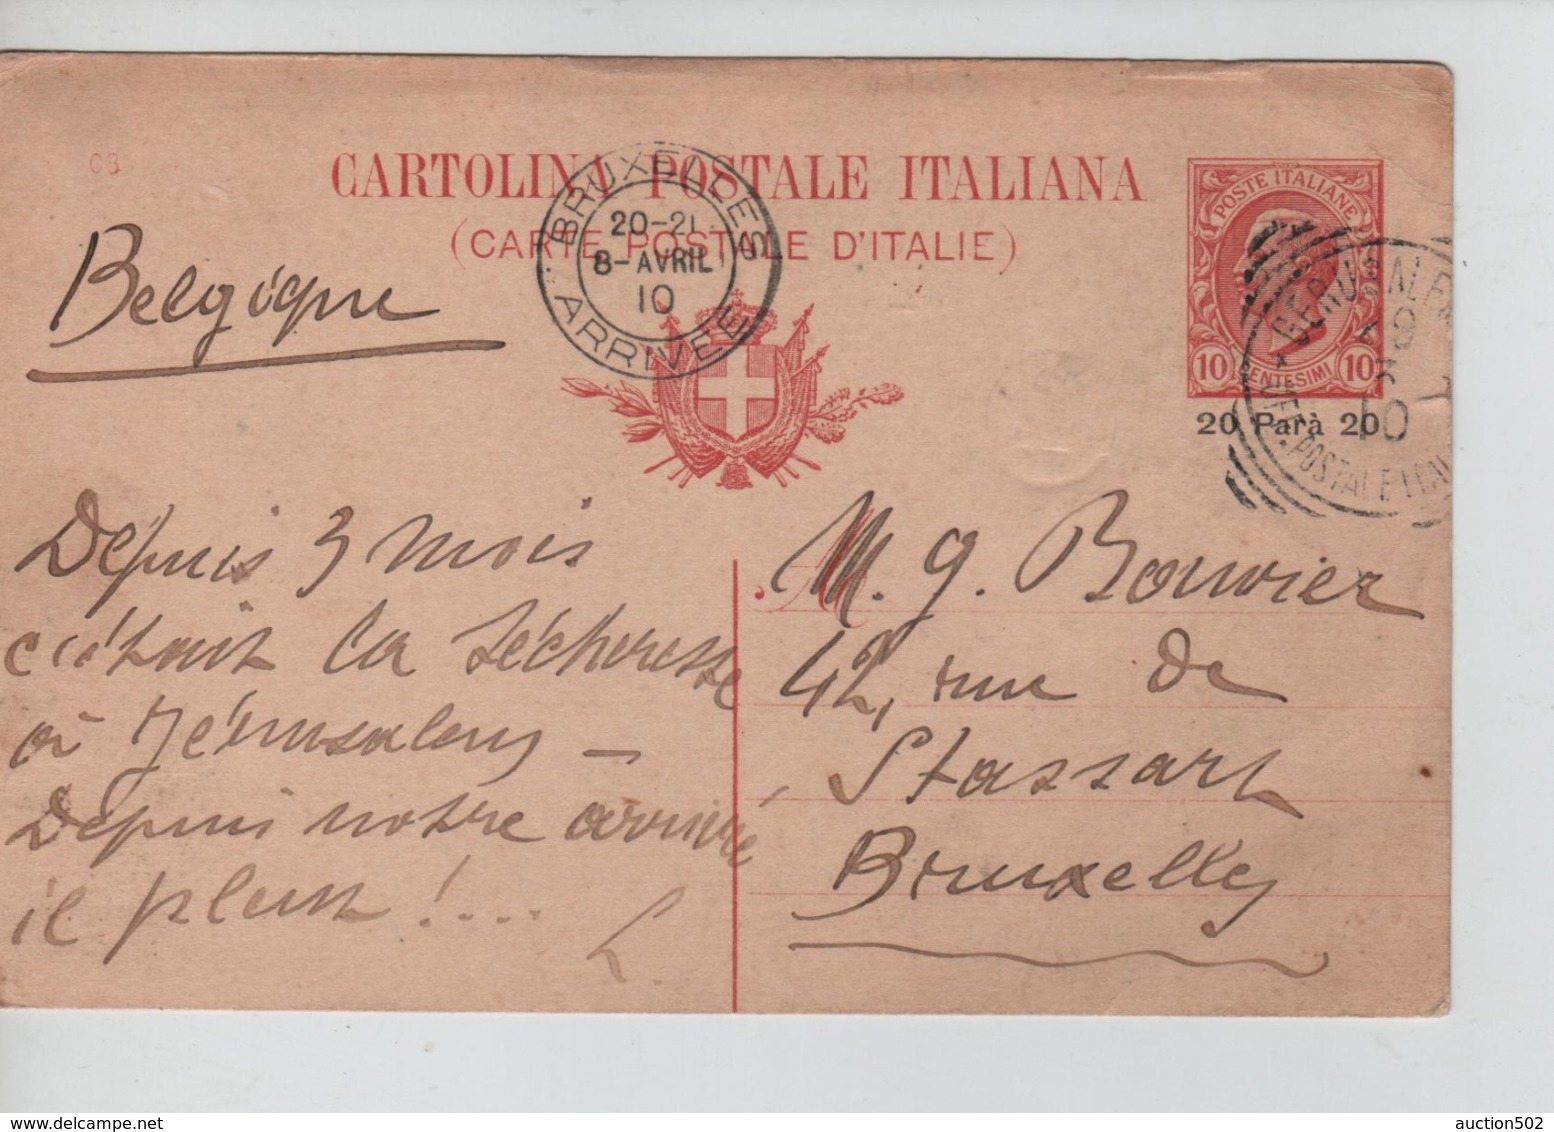 08
CARTOLINA POSTALE ITALIANA
(CARTE POSTALE D'ITALIE)
BRUXELLES
20-21
8-AVRIL
10
ARRIVÉE
POSTE ITALIANE
10 CENTESIMI 10
20 Parà 20
GERUSALEMME
10
UFF. POSTALE ITAL
Belgique
Dépuis 3 mois
c'était la sécheresse
à Jérusalem —
Depuis notre arrivée
il pleut !....
L.
M. G. Bouvier
42, rue de
Stassart
Bruxelles
auction502